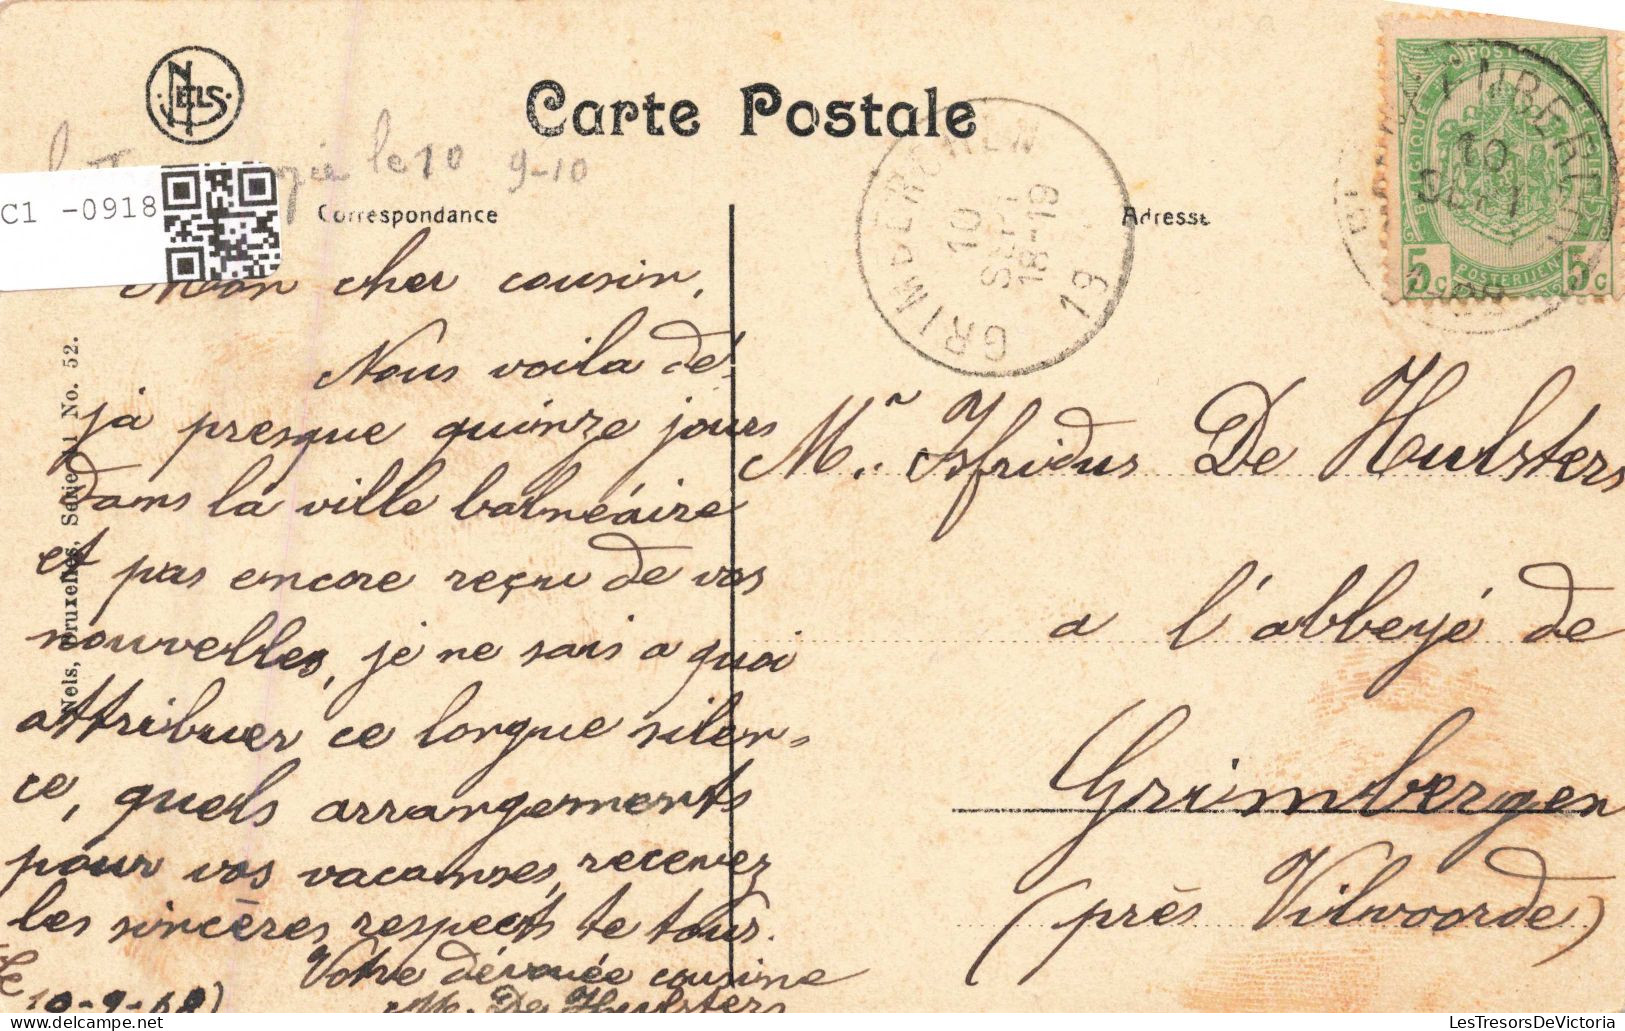 NELS
Carte Postale
le 10 9-10
C1 -0918
Correspondance
Adresse
GRIMBERGHEN
10
SEPT
18-19
19
BELGIQUE POSTES
BELGIE POSTERIJEN
5c 5c
10
SEPT
Mon cher cousin,
Nous voila dé-
jà presque quinze jours
dans la ville balnéaire
et pas encore reçu de vos
nouvelles, je ne sais a quoi
attribuer ce longue silen=
ce, quels arrangements
pour vos vacances, recevez
les sincères respects de tous.
Votre dévouée cousine
M. De Hulsters
10-9-
Nels, Bruxelles, Série 11 No. 52.
Mr. Isfridus De Hulsters
a l'abbeyé de
Grimbergen
(près Vilvoorde)
LesTresorsDeVictoria.com